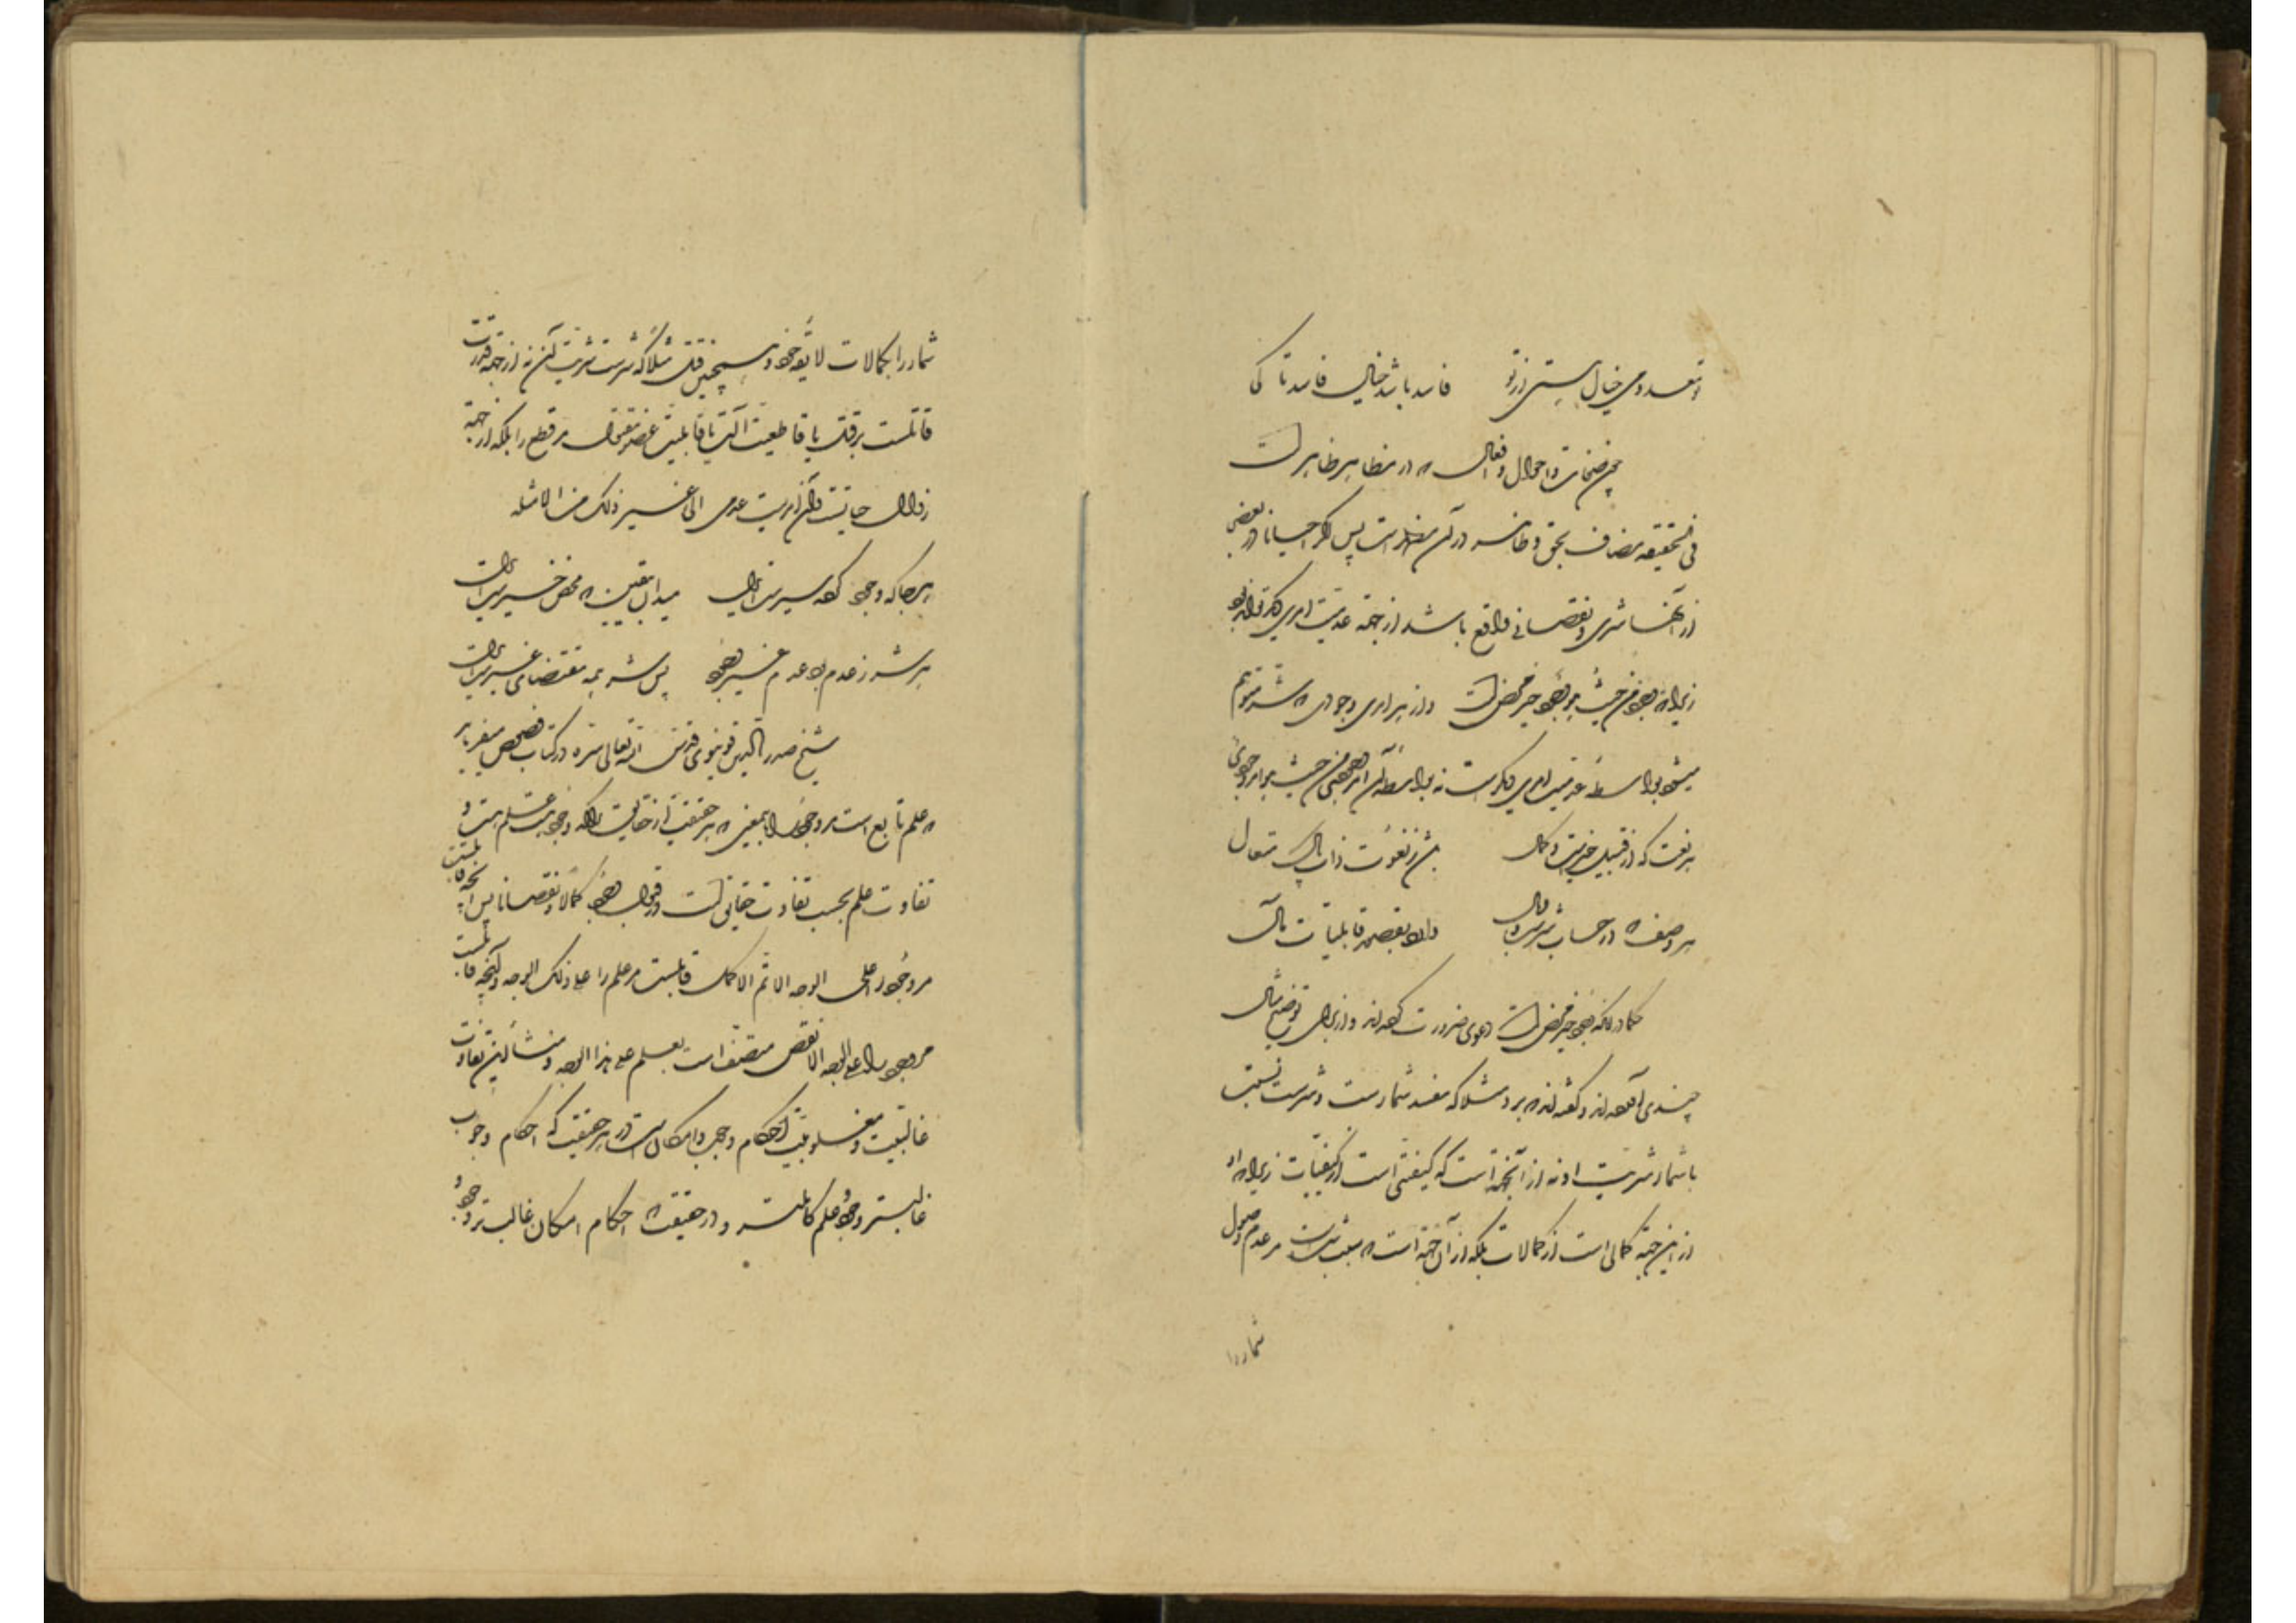 تو معدومی خیال هستی از تو فاسد باشد خیال فاسد تا کی
چون صفات و احوال و افعال که در مظاهر ظاهر است
فی الحقیقه مضاف بحق ظاهر در آن مظاهر است پس اگر احیانا در بعضی
از آنها شری و نقصانی واقع باشد از جهة عدمیت امری دیگر تواند بود
زیرا که وجود من حیث هو وجود خیر محض است و از هر امری وجودی که شری متوهم
میشود بواسطهٔ عدمیت امری دیگرست نه بواسطهٔ آن امر وجودی من حیث هو امر وجودی
هر نعت که از قبیل خیریت و کمال باشد ز نعوت ذات پاک متعال
هر وصف که در حساب شرست و وبال دارد بقصور قابلیات مآل
حکما در آنکه وجود خیر محض است دعوی ضرورت کرده‌اند و از برای توضیح مثالی
چندی آورده‌اند و گفته‌اند که برد مثلا که مفسد ثمارست و شرست نسبت
با ثمار شریت او نه از آنجهة است که کیفیتی است از کیفیات زیرا که او
از این جهة کمالی است از کمالات بلکه از آن جهة است که سبب شده است مر عدم وصول
ثمار را
ثمار را بکمالات لایقهٔ خود و همچنین قتل مثلا که شرست شریت آن نه از جهة قدرت
قاتلست بر قتل یا قاطعیت آلت یا قابلیت عضو مقتول مر قطع را بلکه از جهة
زوال حیاتست و آن امریست عدمی الی غیر ذلک من الامثله
هر جا که وجود کرده سیرست ای دل میدان بیقین که محض خیرست ای دل
هر شر ز عدم بود عدم غیر وجود پس شر همه مقتضای غیرست ای دل
شیخ صدرالدین قونیوی قدس الله تعالی سره در کتاب نصوص میفرماید
که علم تابع است مر وجود را بمعنی که هر حقیقت از حقایق را که وجود هست علم هست و
تفاوت علم بحسب تفاوت حقایق است در قبول وجود کمالا و نقصانا پس آنچه قابلست
مر وجود را علی الوجه الاتم الاکمل قابلست مر علم را علی ذلک الوجه و آنچه قابلست
مر وجود را علی الوجه الانقص متصف است بعلم علی هذا الوجه و منشأ این تفاوت
غالبیت و مغلوبیت احکام وجوب و امکان است در هر حقیقت که احکام وجوب
غالبتر وجود و علم کاملتر و در حقیقت که احکام امکان غالب‌تر وجود و